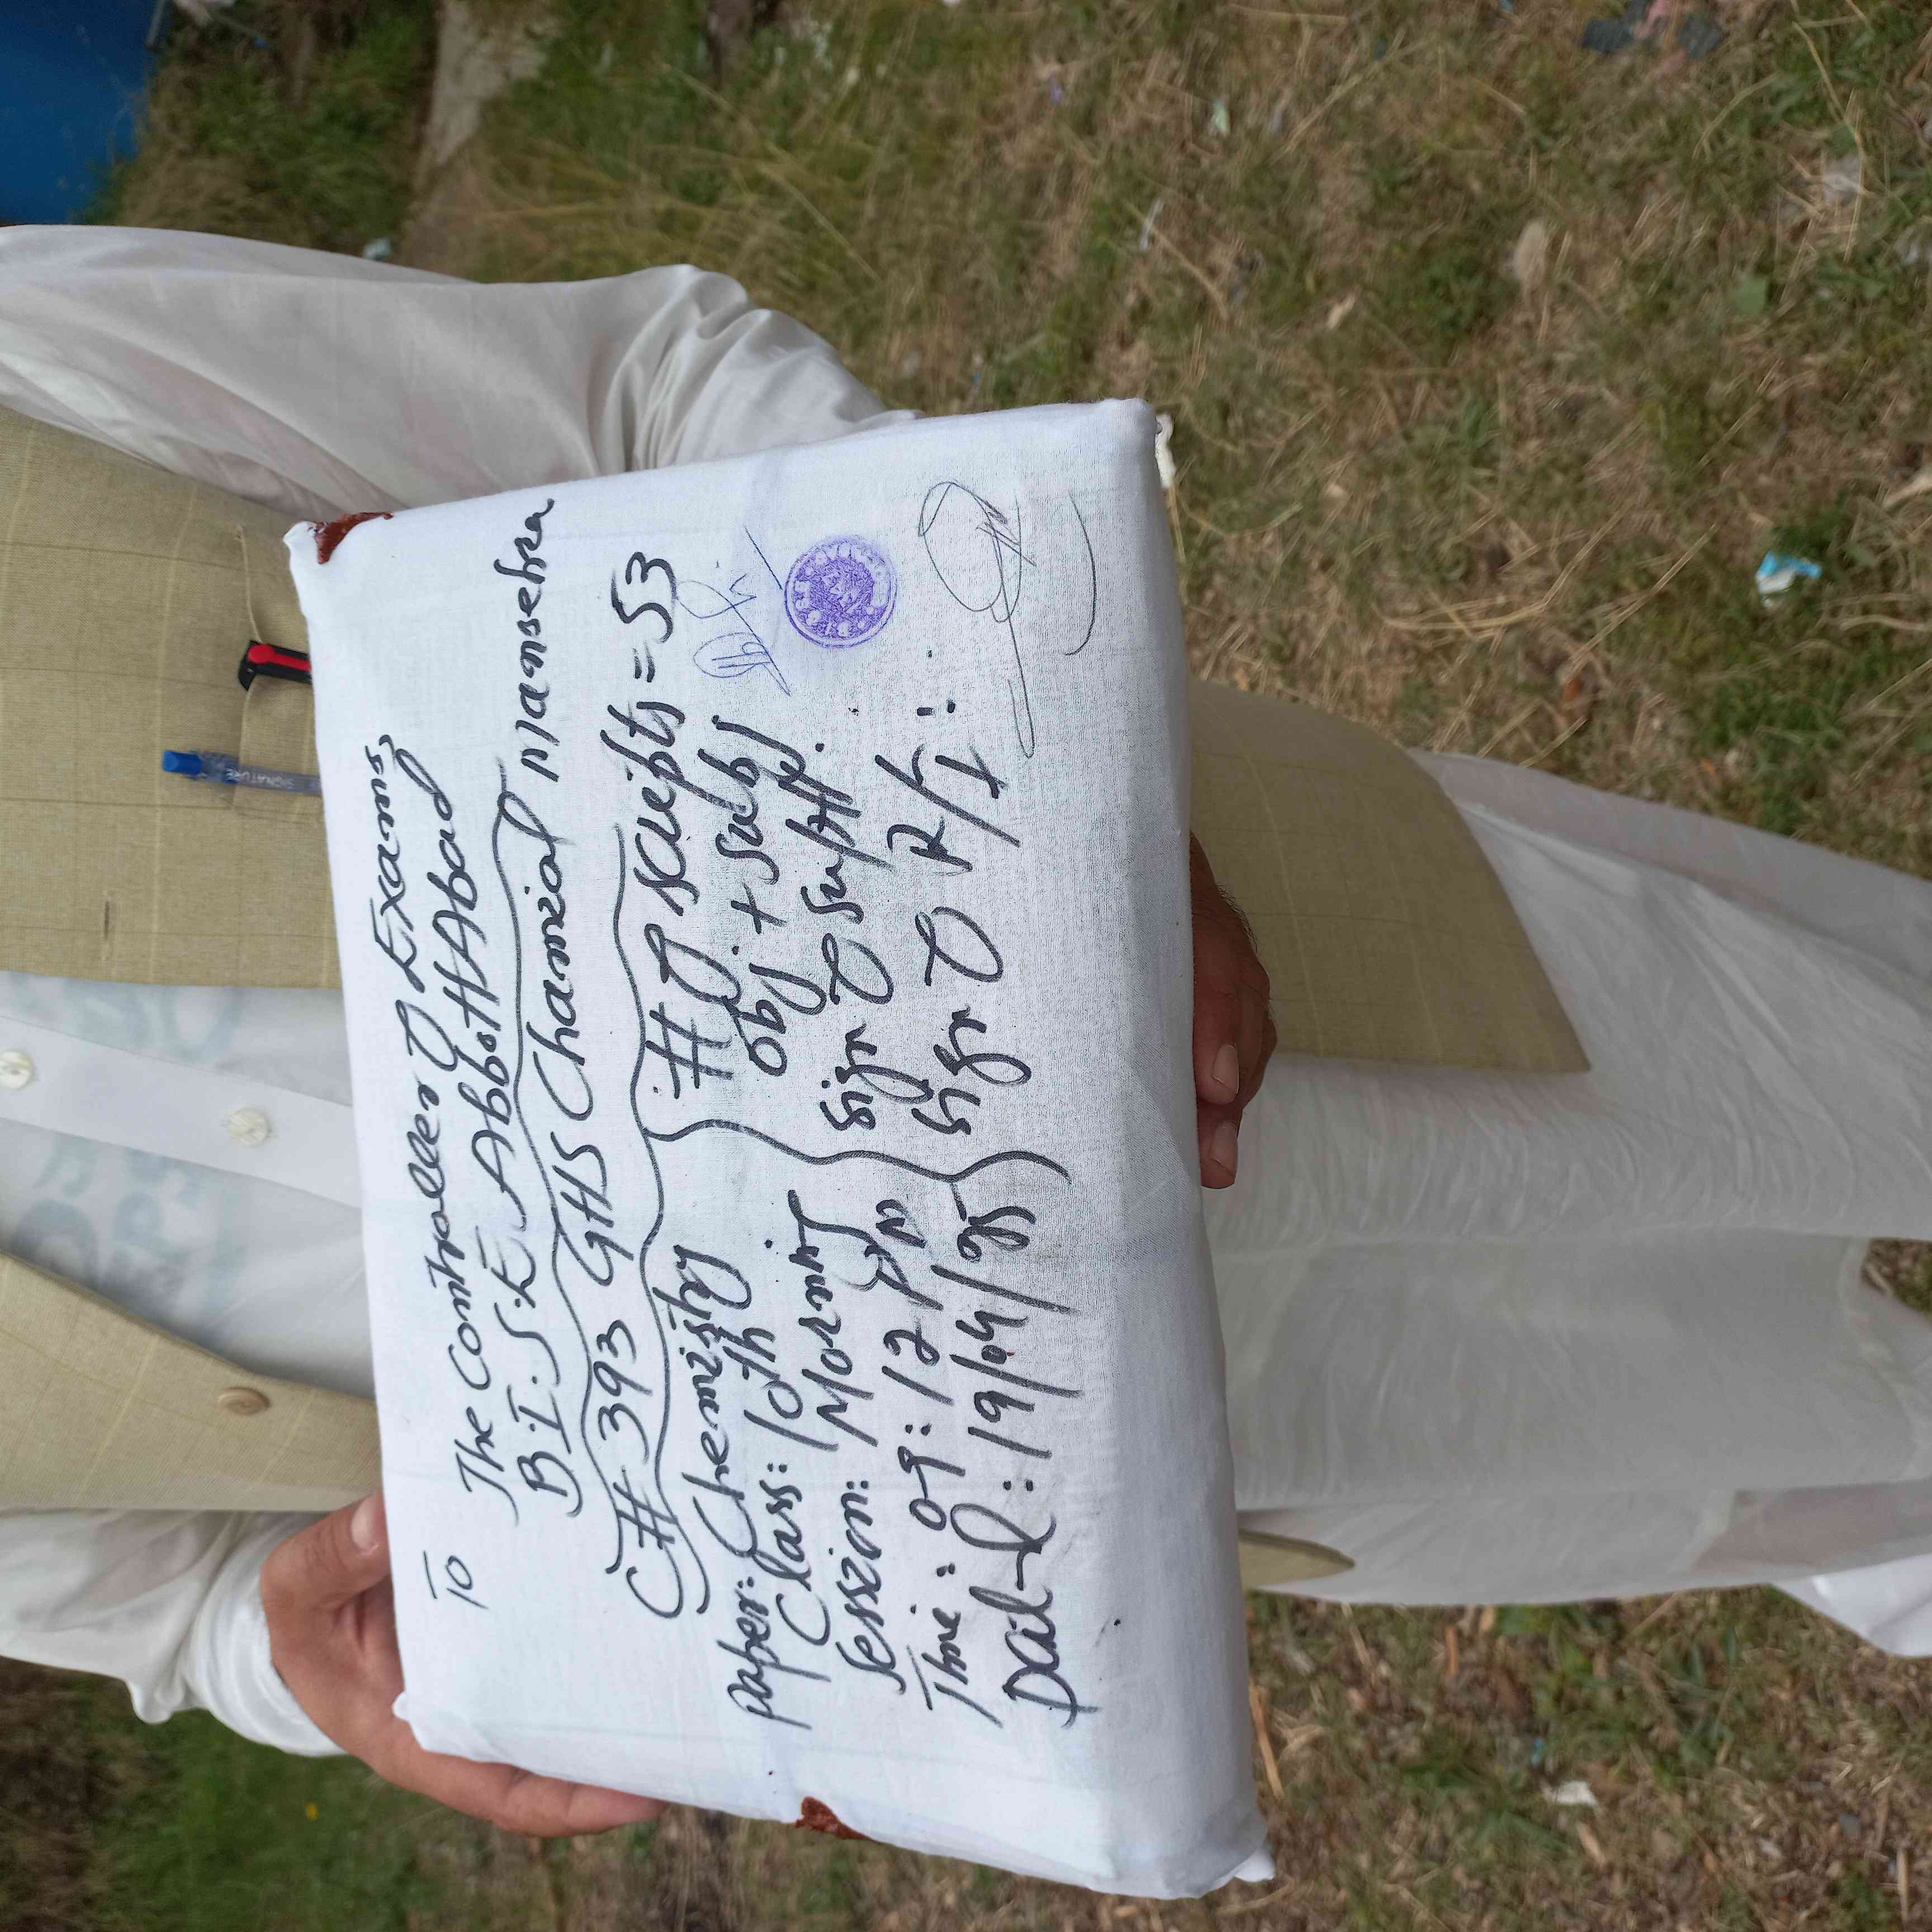 To
The Controller of Exams
B.I.S.E AbbottAbad
C# 393 GHS Chamial Mansehra
Paper: Chemistry
Class: 10th
Session: Morning
Time: 09:12 PM
19/04/25
# of scripts = 53
obj + subj
sign of supdtt.
sign of R/I:
SIGNATURE